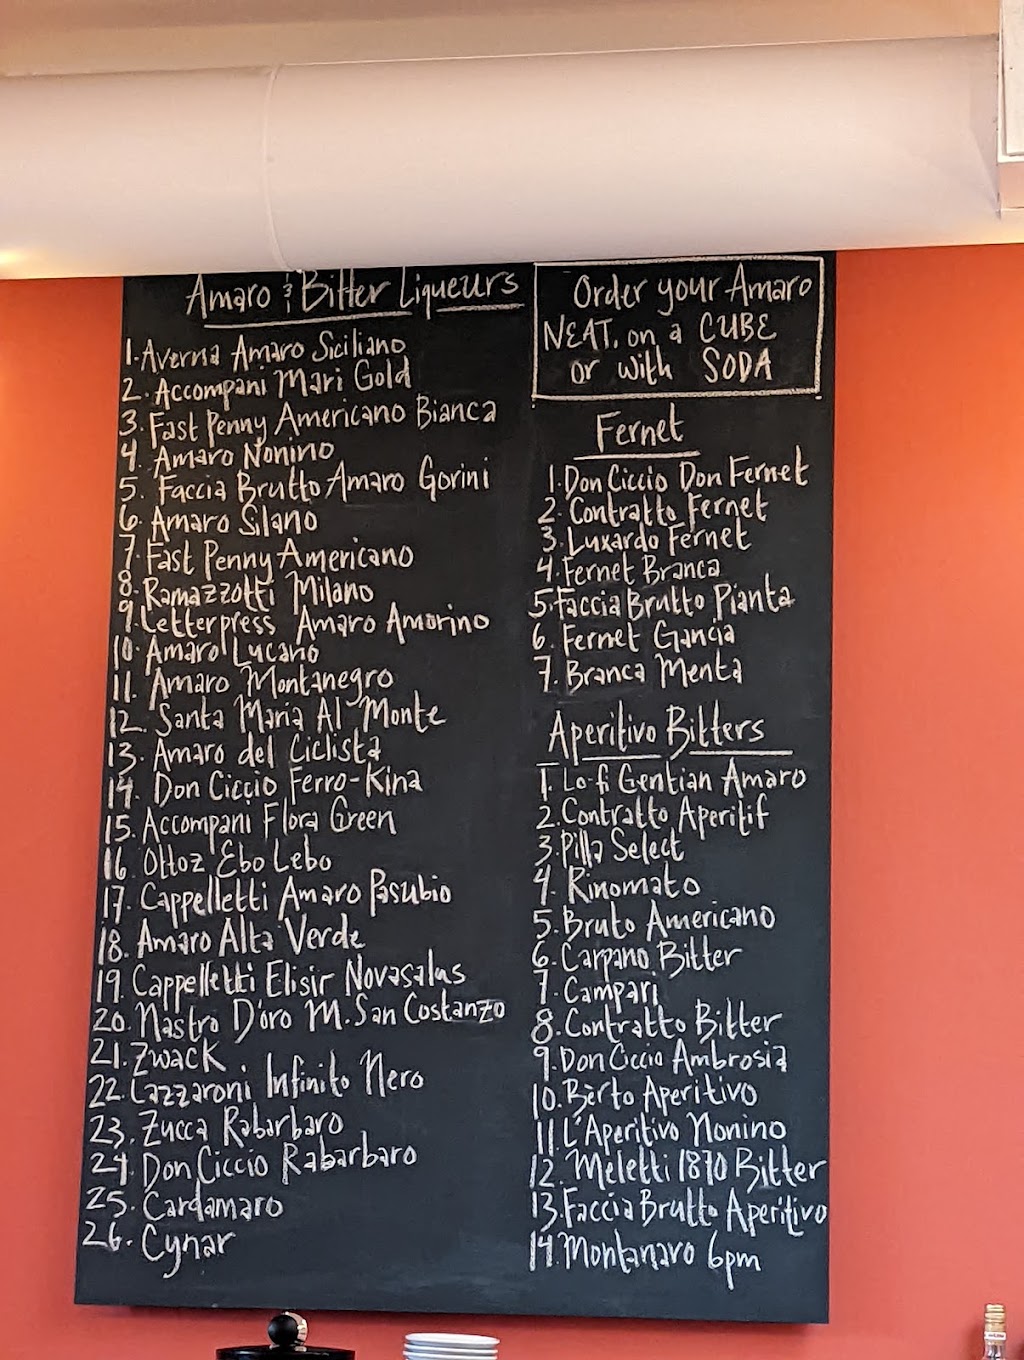 Amaro & Bitter Liqueurs
1. Averna Amaro Siciliano
2. Accompani Mari Gold
3. Fast Penny Americano Bianca
4. Amaro Nonino
5. Faccia Brutto Amaro Gorini
6. Amaro Silano
7. Fast Penny Americano
8. Ramazzotti Milano
9. Letterpress Amaro Amorino
10. Amaro Lucano
11. Amaro Montanegro
12. Santa Maria Al Monte
13. Amaro del Ciclista
14. Don Ciccio Ferro-Kina
15. Accompani Flora Green
16. Ottoz Ebo Lebo
17. Cappelletti Amaro Pasubio
18. Amaro Alta Verde
19. Cappelletti Elisir Novasalus
20. Nastro D'oro M. San Costanzo
21. Zwack
22. Lazzaroni Infinito Nero
23. Zucca Rabarbaro
24. Don Ciccio Rabarbaro
25. Cardamaro
26. Cynar
Order your Amaro
NEAT, on a CUBE
or with SODA
Fernet
1. Don Ciccio Don Fernet
2. Contratto Fernet
3. Luxardo Fernet
4. Fernet Branca
5. Faccia Brutto Pianta
6. Fernet Gancia
7. Branca Menta
Aperitivo Bitters
1. Lo-fi Gentian Amaro
2. Contratto Aperitif
3. Pilla Select
4. Rinomato
5. Bruto Americano
6. Carpano Bitter
7. Campari
8. Contratto Bitter
9. Don Ciccio Ambrosia
10. Berto Aperitivo
11. L'Aperitivo Nonino
12. Meletti 1870 Bitter
13. Faccia Brutto Aperitivo
14. Montanaro 6pm